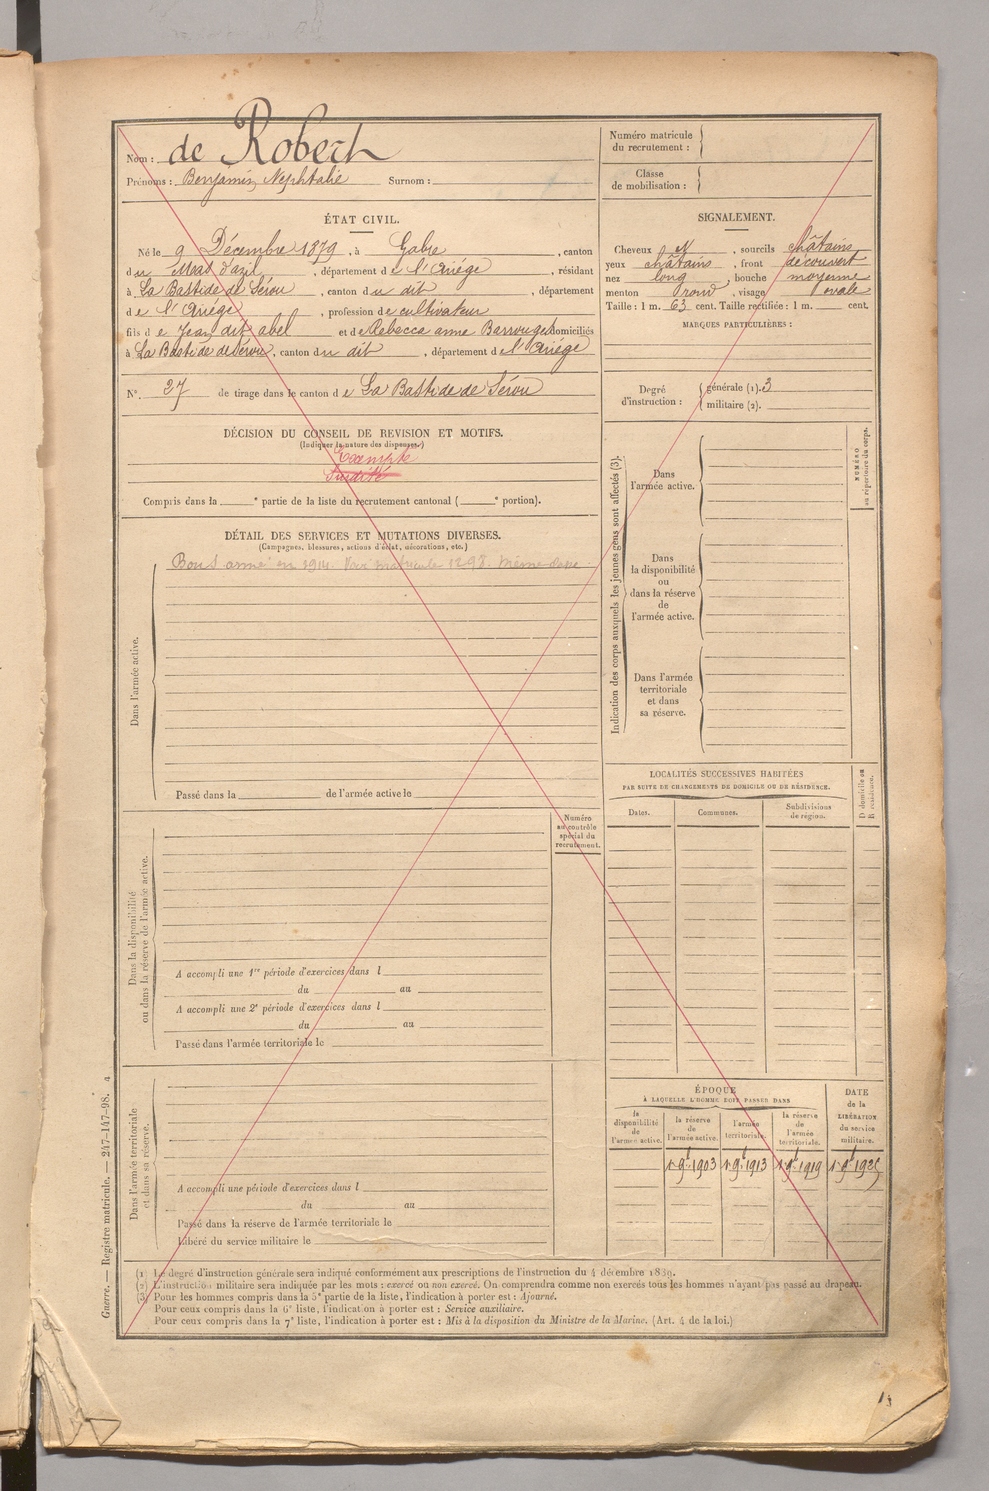 Nom : de Robert
Prénoms : Benjamin Nephtalie Surnom :
Numéro matricule
du recrutement :
Classe
de mobilisation :
ÉTAT CIVIL.
Né le 9 Décembre 1879, à Gabre, canton
du Mas d'azil, département de l'Ariége, résidant
à La Bastide de Sérou, canton du dit, département
de l'Ariége, profession de cultivateur
fils de Jean dit abel et de Rebecca anne domiciliés
à La Bastide de Sérou, canton du dit, département de l'Ariége
N° 27 de tirage dans le canton de La Bastide de Sérou
SIGNALEMENT.
Cheveux N, sourcils châtains
yeux châtains, front découvert
nez long, bouche moyenne
menton rond, visage ovale
Taille : 1 m. 63 cent. Taille rectifiée : 1 m. cent.
MARQUES PARTICULIÈRES :
Degré
d'instruction :
générale (1). 3
militaire (2).
DÉCISION DU CONSEIL DE REVISION ET MOTIFS.
(Indiquer la nature des dispenses.)
Exempté
Surdité
Compris dans la e partie de la liste du recrutement cantonal ( e portion).
DÉTAIL DES SERVICES ET MUTATIONS DIVERSES.
(Campagnes, blessures, actions d'éclat, décorations, etc.)
Bon S. armé en 1914. Voir matricule 1298.
Dans l'armée active.
Passé dans la de l'armée active le
Indication des corps auxquels les jeunes gens sont affectés (3).
Dans
l'armée active.
Dans
la disponibilité
ou
dans la réserve
de
l'armée active.
Dans l'armée
territoriale
et dans
sa réserve.
NUMÉRO
au répertoire du corps.
LOCALITÉS SUCCESSIVES HABITÉES
PAR SUITE DE CHANGEMENTS DE DOMICILE OU DE RÉSIDENCE.
Dates.
Communes.
Subdivisions
de région.
D domicile ou
R résidence.
Numéro
au contrôle
spécial du
recrutement.
Dans la disponibilité
ou dans la réserve de l'armée active.
A accompli une 1re période d'exercices dans l
du au
A accompli une 2e période d'exercices dans l
du au
Passé dans l'armée territoriale le
Dans l'armée territoriale
et dans sa réserve.
A accompli une période d'exercices dans l
du au
Passé dans la réserve de l'armée territoriale le
Libéré du service militaire le
ÉPOQUE
À LAQUELLE L'HOMME DOIT PASSER DANS
la
disponibilité
de
l'armée active.
la réserve
de
l'armée active.
l'armée
territoriale.
la réserve
de
l'armée
territoriale.
DATE
de la
LIBÉRATION
du service
militaire.
1er 9bre 1903 1er 9bre 1913 1er 9bre 1919 1er 9bre 1925
(1) Le degré d'instruction générale sera indiqué conformément aux prescriptions de l'instruction du 4 décembre 1889.
(2) L'instruction militaire sera indiquée par les mots : exercé ou non exercé. On comprendra comme non exercés tous les hommes n'ayant pas passé au drapeau.
(3) Pour les hommes compris dans la 5e partie de la liste, l'indication à porter est : Ajourné.
Pour ceux compris dans la 6e liste, l'indication à porter est : Service auxiliaire.
Pour ceux compris dans la 7e liste, l'indication à porter est : Mis à la disposition du Ministre de la Marine. (Art. 4 de la loi.)
Guerre. — Registre matricule. — 247-147-98.